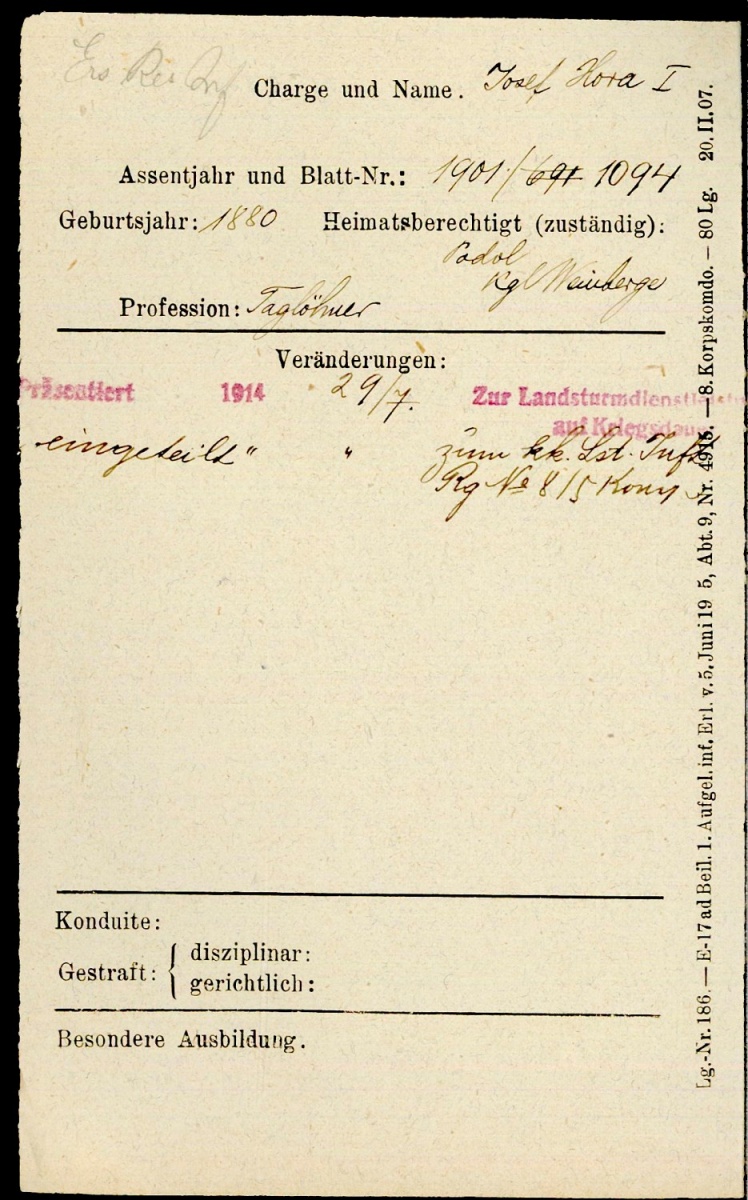 Ers Res Inf
Charge und Name. Josef Hora I
Assentjahr und Blatt-Nr.: 1901/691 1094
Geburtsjahr: 1880 Heimatsberechtigt (zuständig):
Podol
Kgl Weinberge
Profession: Taglöhner
Veränderungen:
Präsentiert 1914 29/7. Zur Landsturmdienstleistu
auf Kriegsdauer
eingeteilt " " zum kk. Lst. Inft
Rg No 8/5 Komp
Konduite:
Gestraft: { disziplinar:
gerichtlich:
Besondere Ausbildung.
Lg.-Nr. 186. — E-17 ad Beil. 1. Aufgel. inf. Erl. v. 5. Juni 19 5, Abt. 9, Nr. 4915. — 8. Korpskomdo. — 80 Lg. 20. II. 07.